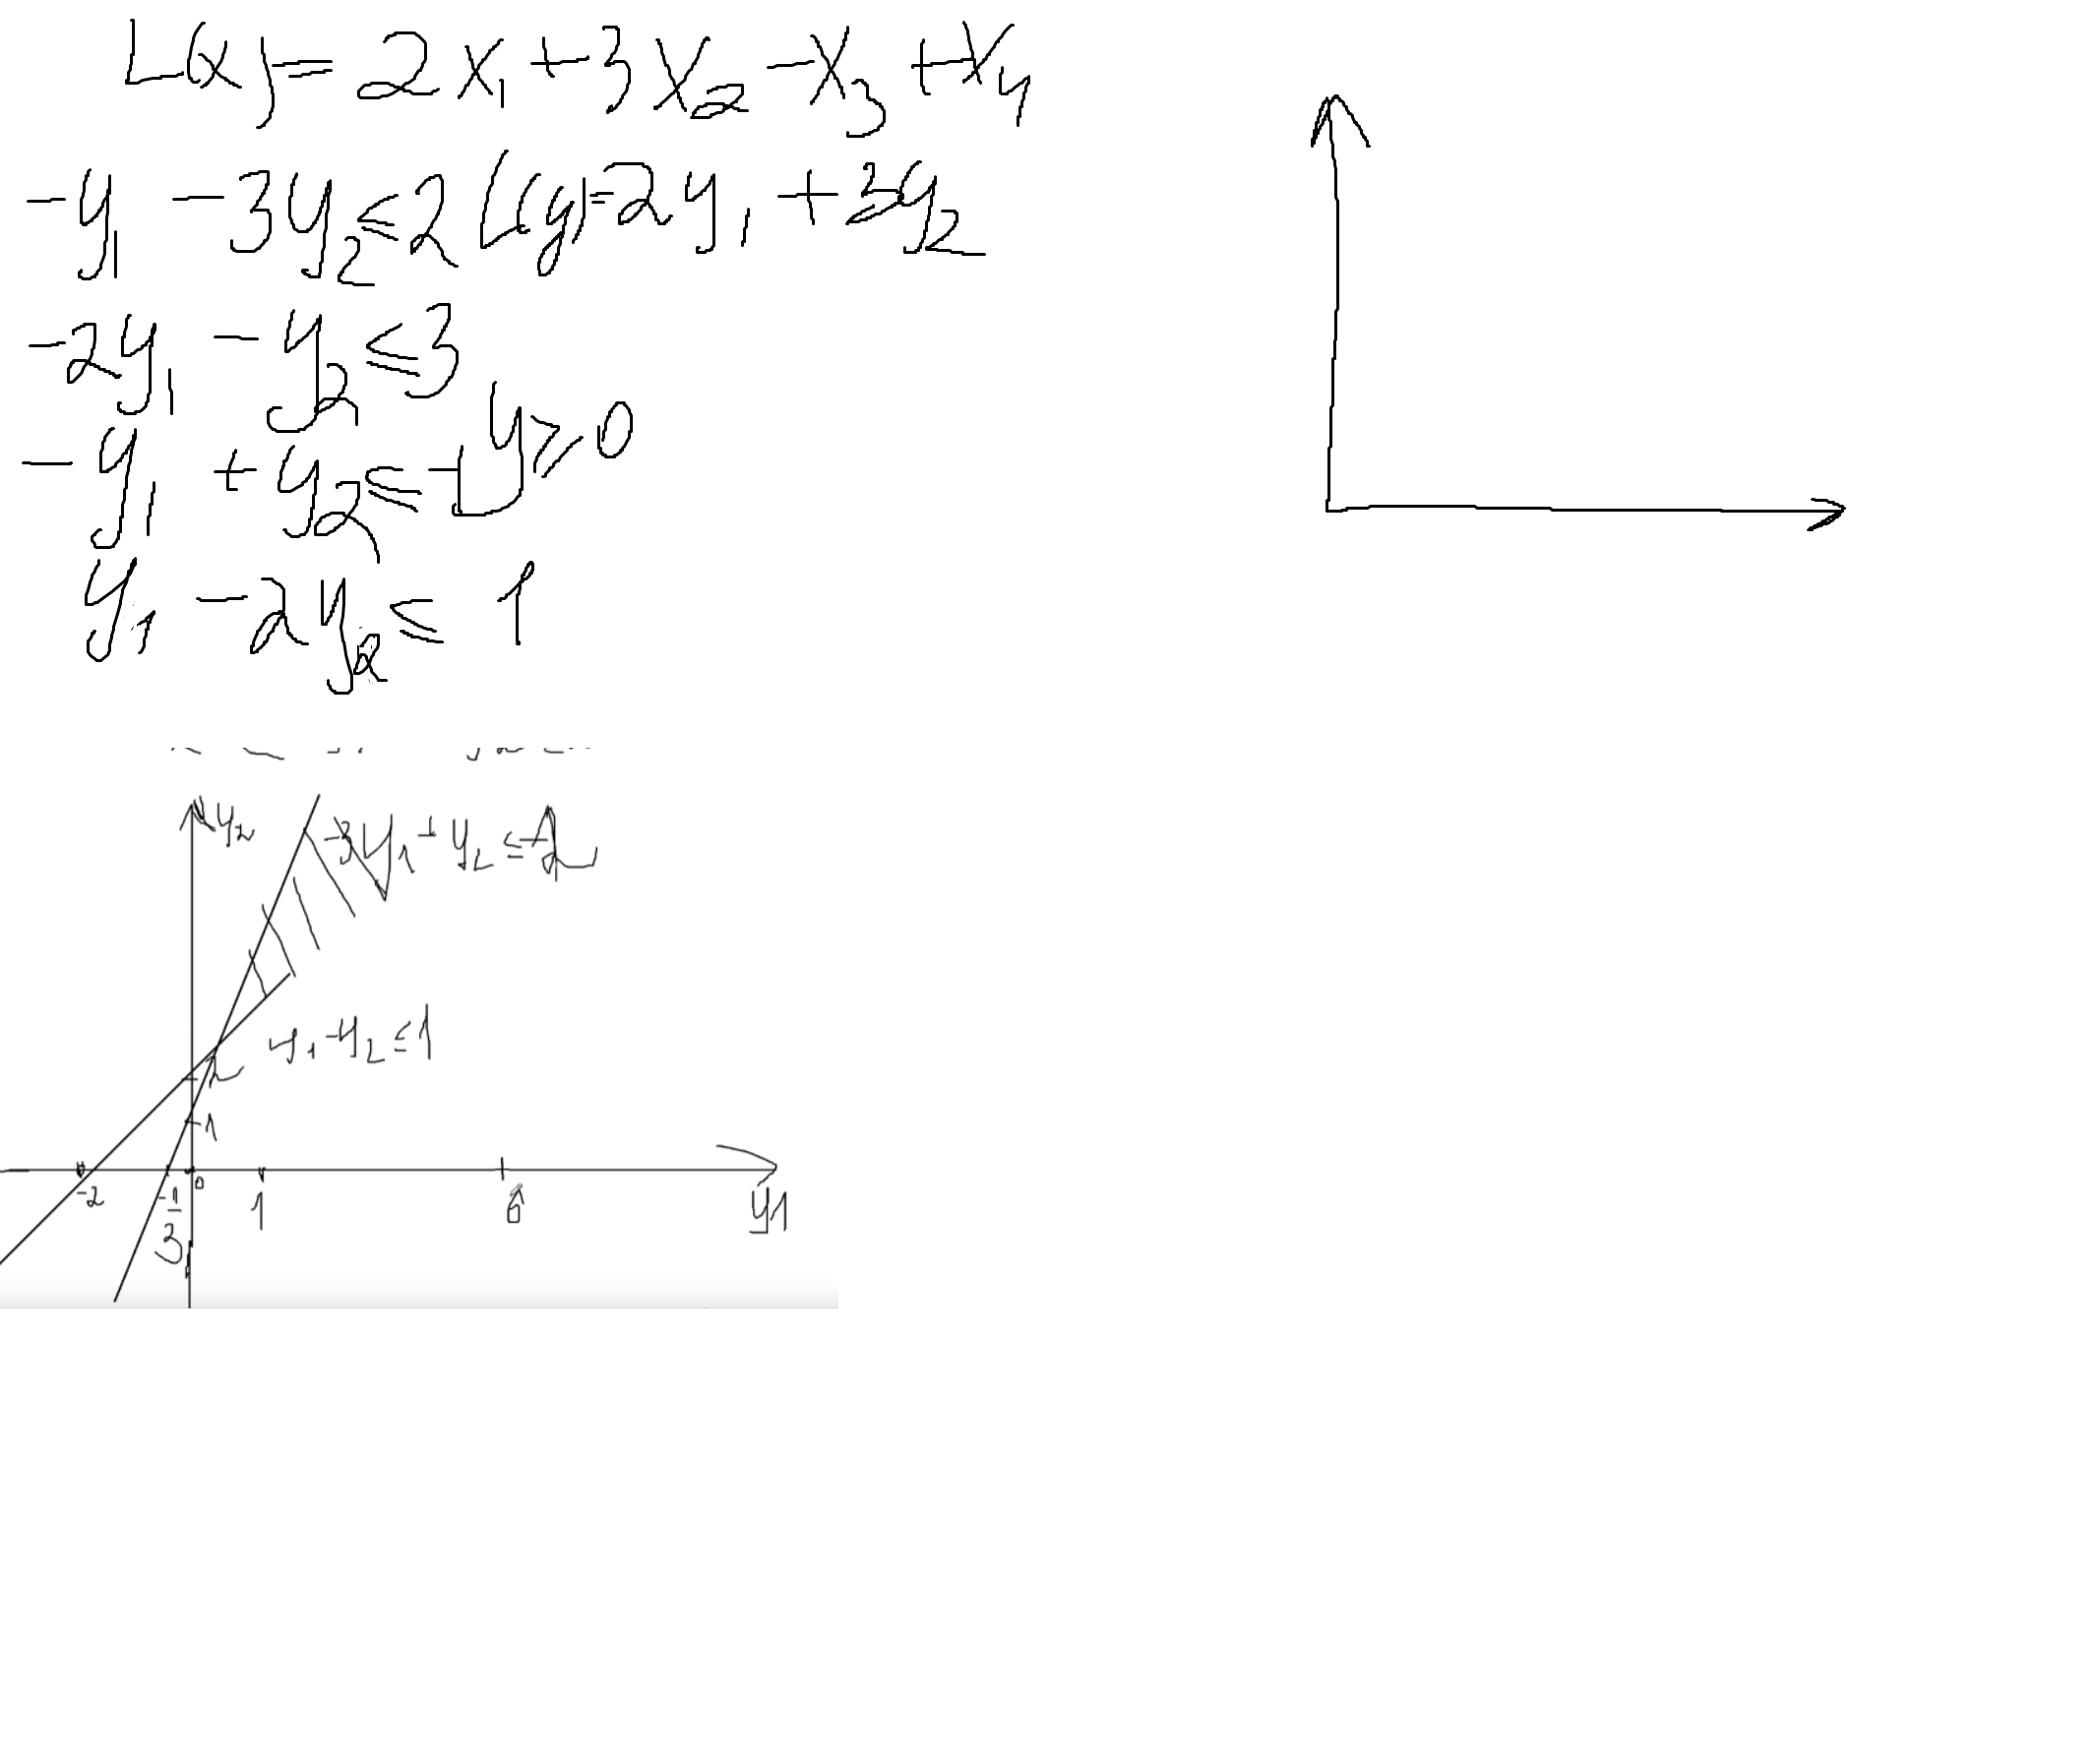 L(x) = 2x₁ + 3x₂ - x₃ + x₄
-y₁ - 3y₂ ≤ 2 L(y) = 2y₁ + 3y₂
-2y₁ - y₂ ≤ 3
y ≥ 0
-y₁ + y₂ ≤ -1
y₁ - 2y₂ ≤ 1
y₂
-3y₁ + y₂ ≤
y₁ - y₂ ≤ 1
2
1
-2
-1/3
0
1
6
y1